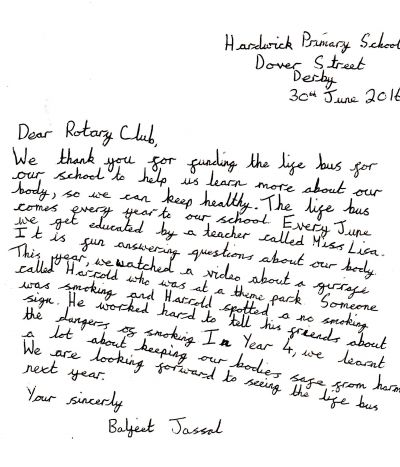 Hardwick Primary School
Dover Street
Derby
30th June 2016
Dear Rotary Club,
We thank you for funding the life bus for
our school to help us learn more about our
body, so we can keep healthy. The life bus
comes every year to our school Every June
we get educated by a teacher called Miss Lisa.
It is fun answering questions about our body
This year, we watched a video about a girrage
called Harrold who was at a theme park Someone
was smoking and Harrold spotted a no smoking
sign. He worked hard to tell his friends about
the dangers of smoking In Year 4, we learnt
a lot about keeping our bodies safe from harm
We are looking forward to seeing the life bus
next year.
Your sincerly
Baljeet Jassal